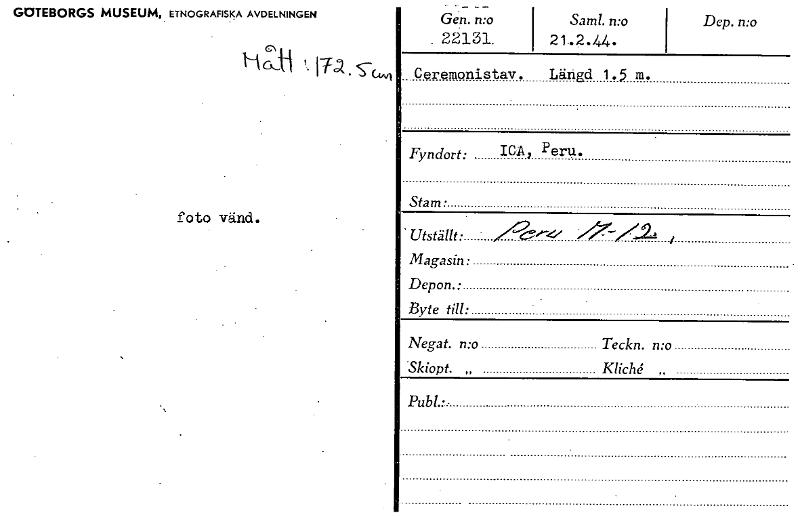 GÖTEBORGS MUSEUM, ETNOGRAFISKA AVDELNINGEN
Mått: 172.5 cm
foto vänd.
Gen. n:o
22131
Saml. n:o
21.2.44.
Dep. n:o
Ceremonistav. Längd 1.5 m.
Fyndort: ICA, Peru.
Stam:
Utställt: Peru M-12.
Magasin:
Depon.:
Byte till:
Negat. n:o Teckn. n:o
Skiopt. „ Kliché „
Publ.: